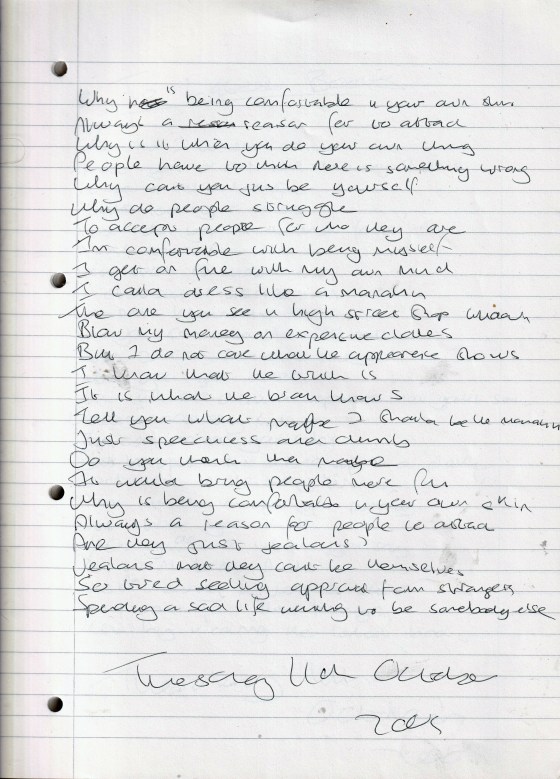 Why is being comfortable in your own skin
Always a reason for to attack
Why is it when you do your own thing
People have to think there is something wrong
Why can't you just be yourself
Why do people struggle
To accept people for who they are
I'm comfortable with being myself
I get on fine with my own mind
I could dress like a manakin
The one you see in high street shop window
Blow my money on expensive clothes
But I do not care what the appearance shows
I know what the truth is
It is what the brain knows
Tell you what maybe I should be the manakin
Just speechless and dumb
Do you think that maybe
It would bring people more fun
Why is being comfortable in your own skin
Always a reason for people to attack
Are they just jealous?
Jealous that they can't be themselves
So tired seeking approval from strangers
Spending a sad life wanting to be somebody else
Tuesday 11th October
2005